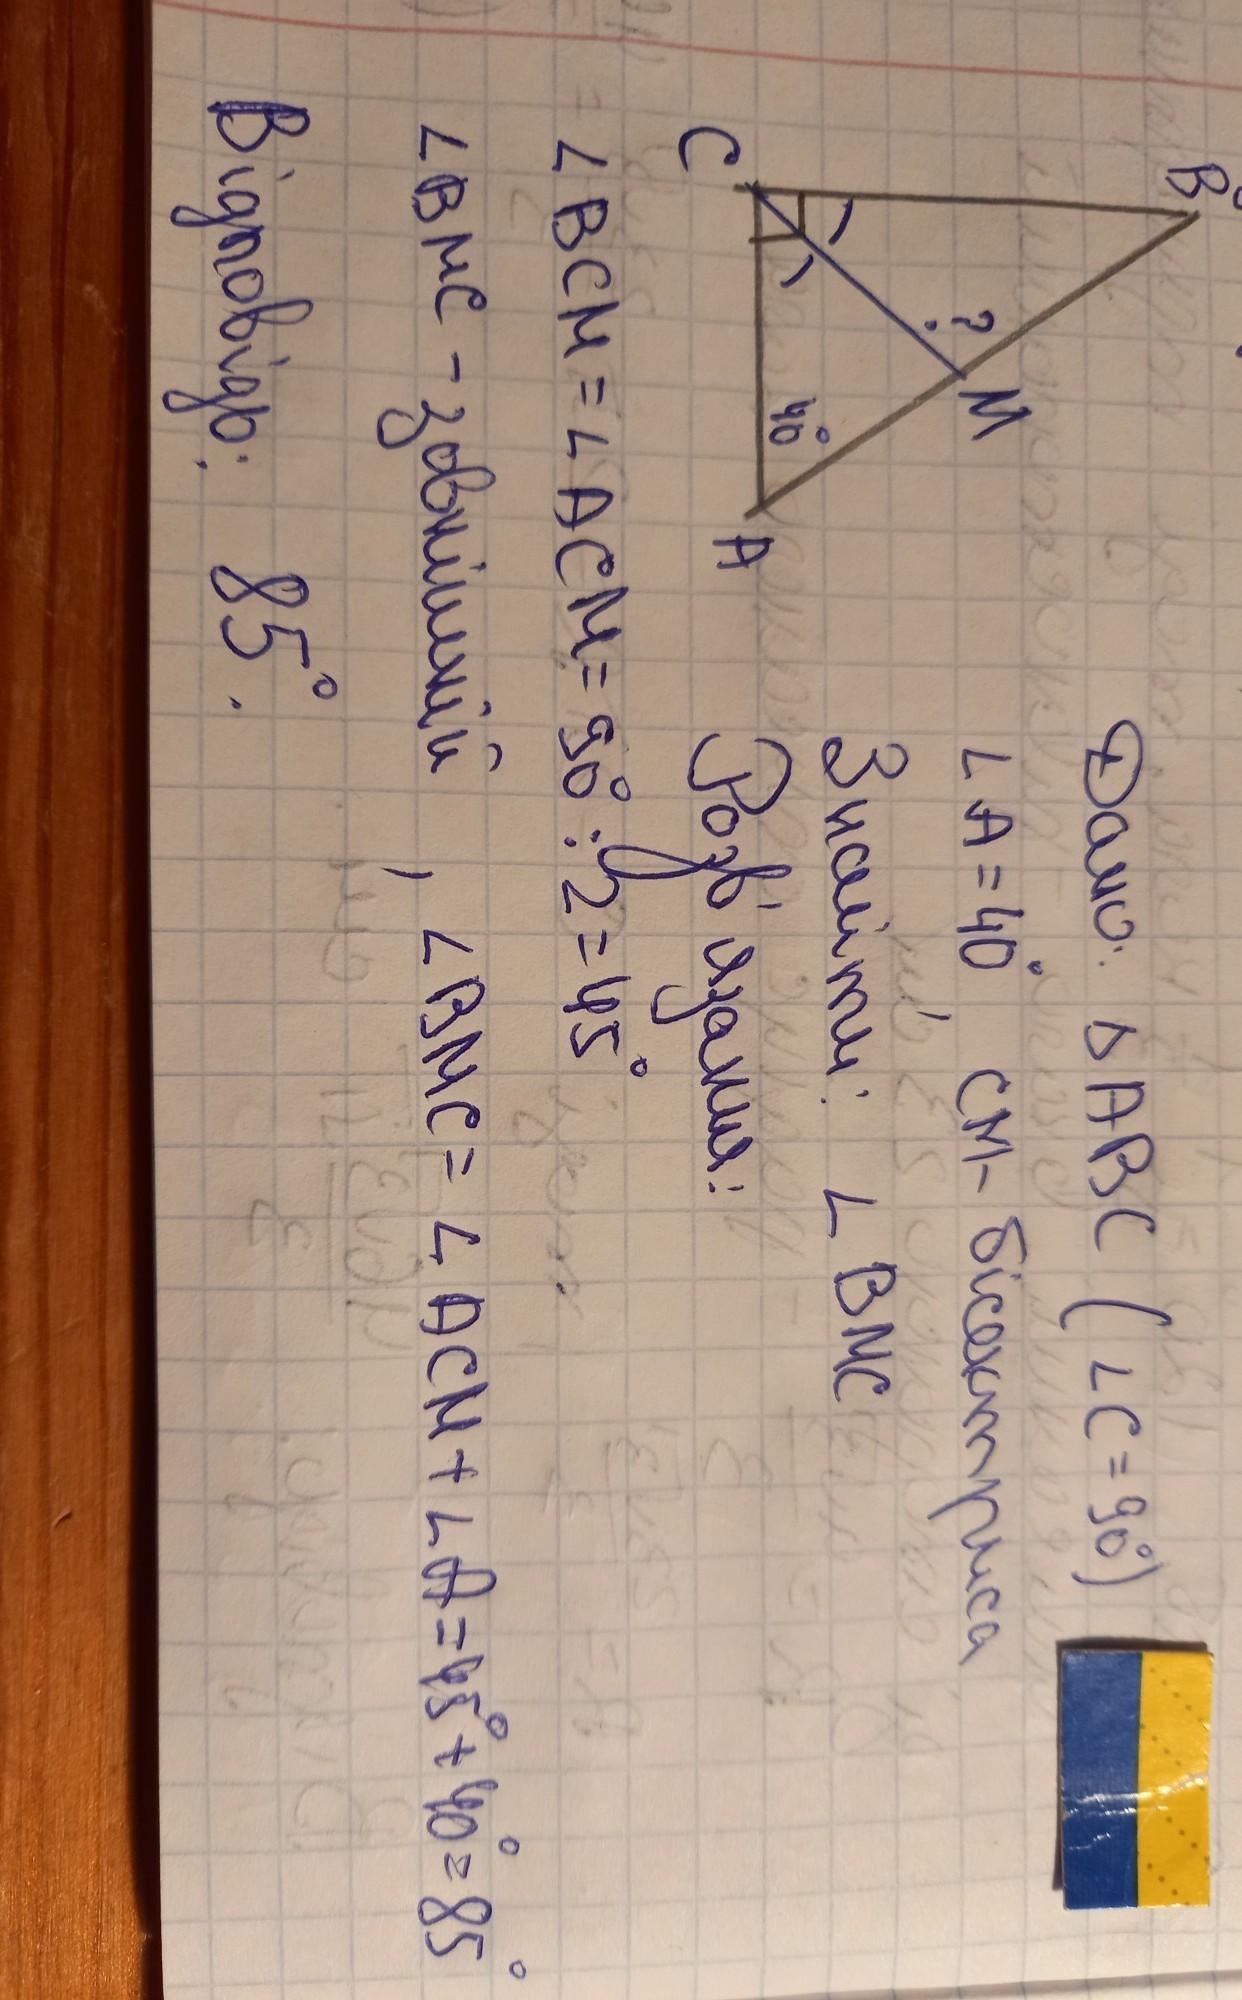 Дано: △ABC (∠C=90°)
∠A=40°, CM- бісектриса
Знайти: ∠BMC
Розв'язання:
B
? M
40°
C A
∠BCM=∠ACM=90°:2=45°
∠BMC - зовнішній , ∠BMC=∠ACM+∠A=45°+40°=85°
Відповідь: 85°.